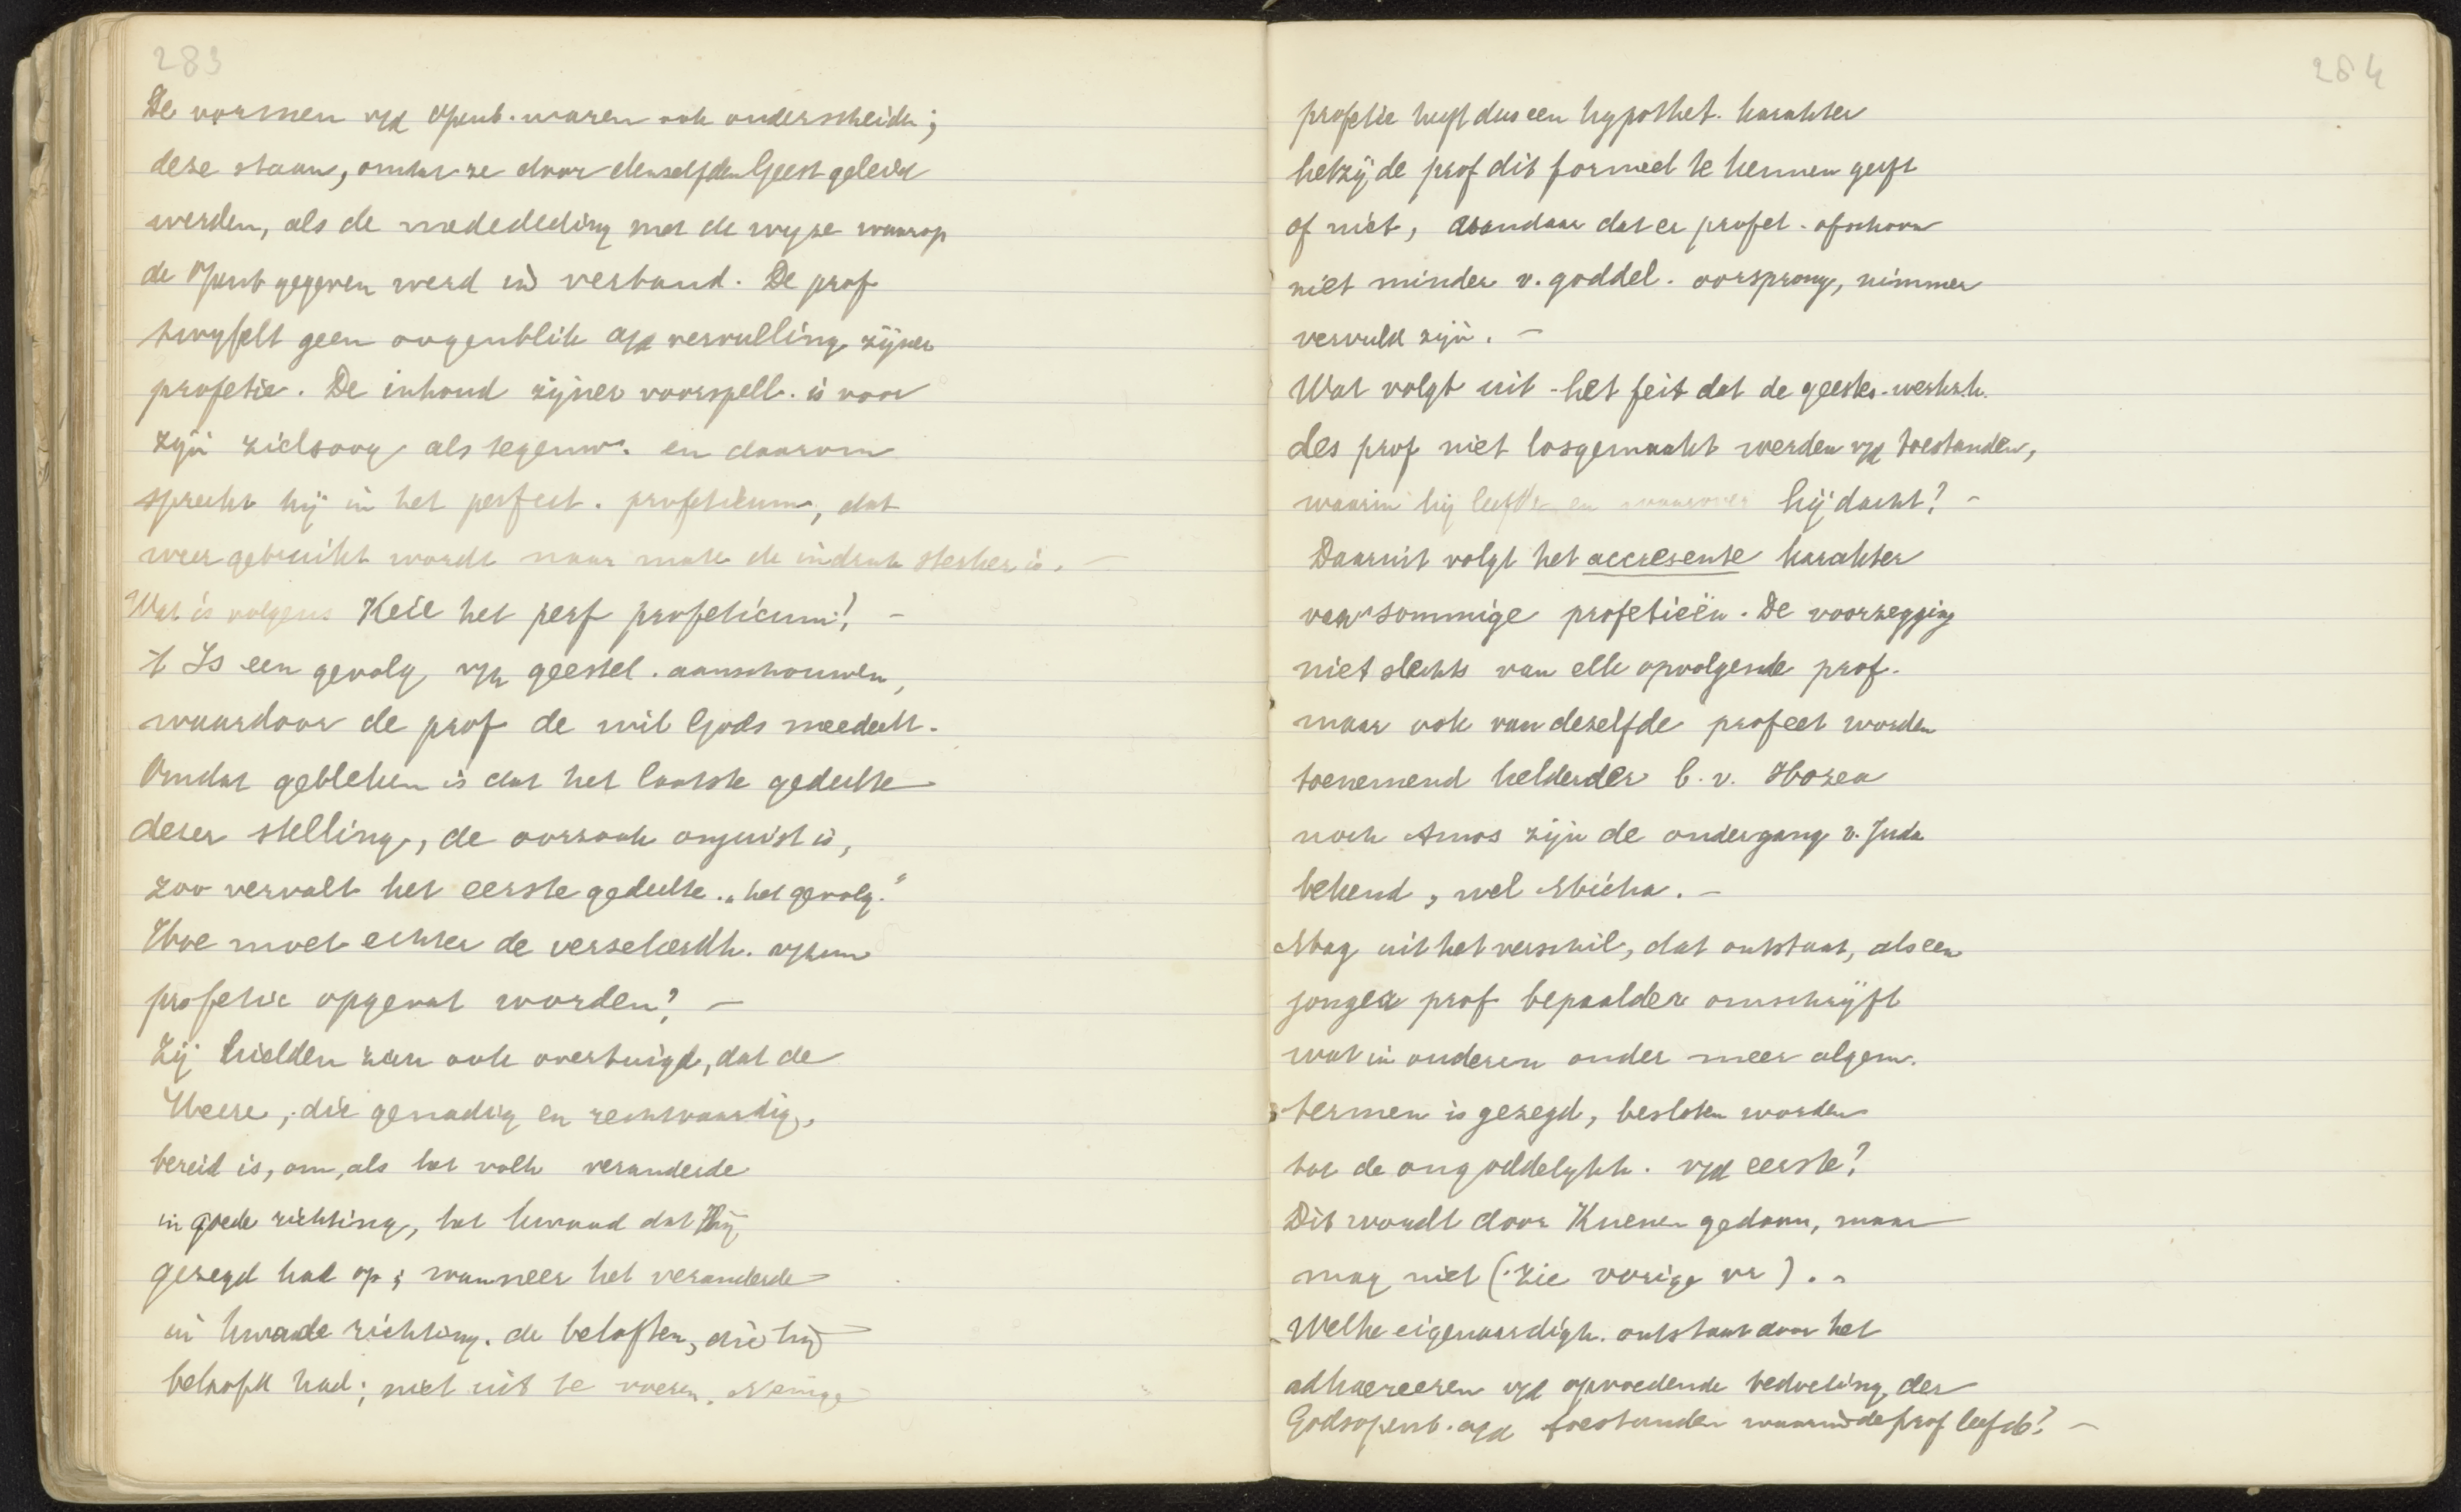 283
De vormen v/d Openb. waren ook onderscheidn;
deze staan, omdat ze door denzelfden Geest geleid
werden, als de mededeeling met de wyze waarop
de Openb gegeven werd in verband. De prof
twyfelt geen oogenblik a/d vervulling zijner
profetie. De inhoud zijner voorspell. is voor
zijn zielsoog als tegenw. en daarom
spreekt hij in het perfect. profeticum, dat
weer gebruikt wordt naar mate de indruk sterker is. —
Wat is volgens Keil het perf profeticum? —
't Is een gevolg v/h geestel. aanschouwen,
waardoor de prof de wil Gods meedeelt.
Omdat gebleken is dat het laatste gedeelte
dezer stelling, de oorzaak onjuist is,
zoo vervalt het eerste gedeelte „het gevolg."
Hoe moet echter de verzekerdh. v/hun
profetie opgevat worden? —
Zij hielden zich ook overtuigd, dat de
Heere, die genadig en rechtvaardig,
bereid is, om, als het volk veranderde
in goede richting, het kwaad dat Hij
gezegd had op; wanneer het veranderde
in kwade richting. de beloften, die hij
beloofd had; niet uit te voeren. Menige
284
profetie heeft dus een hypothet. karakter
hetzij de prof dit formeel te kennen geeft
of niet, vandaar dat er profet. ofschoon
niet minder v. goddel. oorsprong, nimmer
vervuld zijn. —
Wat volgt uit het feit dat de geestes-werkz.h.
des prof niet losgemaakt werden v/d toestanden,
waarin hij leefde en waarover hij dacht? —
Daaruit volgt het accresente karakter
van sommige profetieën. De voorzegging
niet slechts van elk opvolgende prof.
maar ook van dezelfde profeet worden
toenemend helderder b.v. Hozea
noch Amos zijn de ondergang v. Juda
bekend, wel Micha. —
Mag uit het verschil, dat ontstaat, als een
jonger prof bepaalder omschrijft
wat in anderen onder meer algem.
termen is gezegd, besloten worden
tot de ongoddelykh. v/d eerste?
Dit wordt door Kuenen gedaan, maar
mag niet (zie vorige vr). —
Welke eigenaardigh. ontstaat door het
adhaereeren v/d opvoedende bedoeling der
Godsopenb. a/d toestanden waarin de prof leefde? —